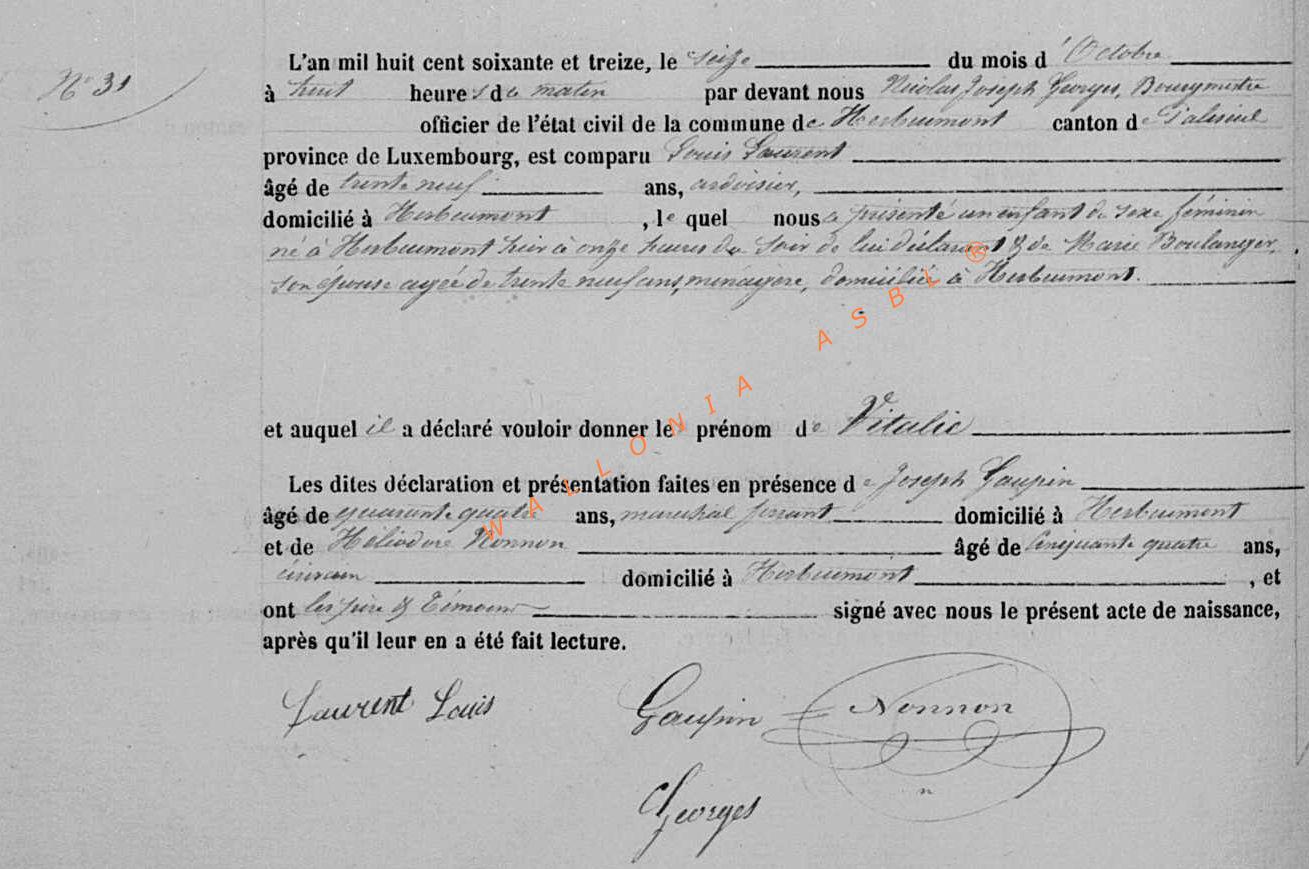 N° 31
L'an mil huit cent soixante et treize, le seize du mois d'Octobre
à huit heures de matin par devant nous Nicolas Joseph Georges, Bourgmestre
officier de l'état civil de la commune de Herbeumont canton de Paliseul
province de Luxembourg, est comparu Louis Laurent
âgé de trente neuf ans, ardoisier,
domicilié à Herbeumont, le quel nous a présenté un enfant de sexe féminin
né à Herbeumont hier à onze heures du soir de lui déclarant & de Marie Boulanger,
son épouse agée de trente neuf ans, ménagère, domiciliée à Herbeumont.
et auquel il a déclaré vouloir donner le prénom de Vitalie
Les dites déclaration et présentation faites en présence de Joseph Gaupin
âgé de quarante quatre ans, maréchal ferrant domicilié à Herbeumont
et de Héliodore Nonnon âgé de cinquante quatre ans,
domicilié à Herbeumont, et
ont les père & témoins signé avec nous le présent acte de naissance,
après qu'il leur en a été fait lecture.
Laurent Louis Gaupin Nonnon
Georges
WALLONIA ASBL ®